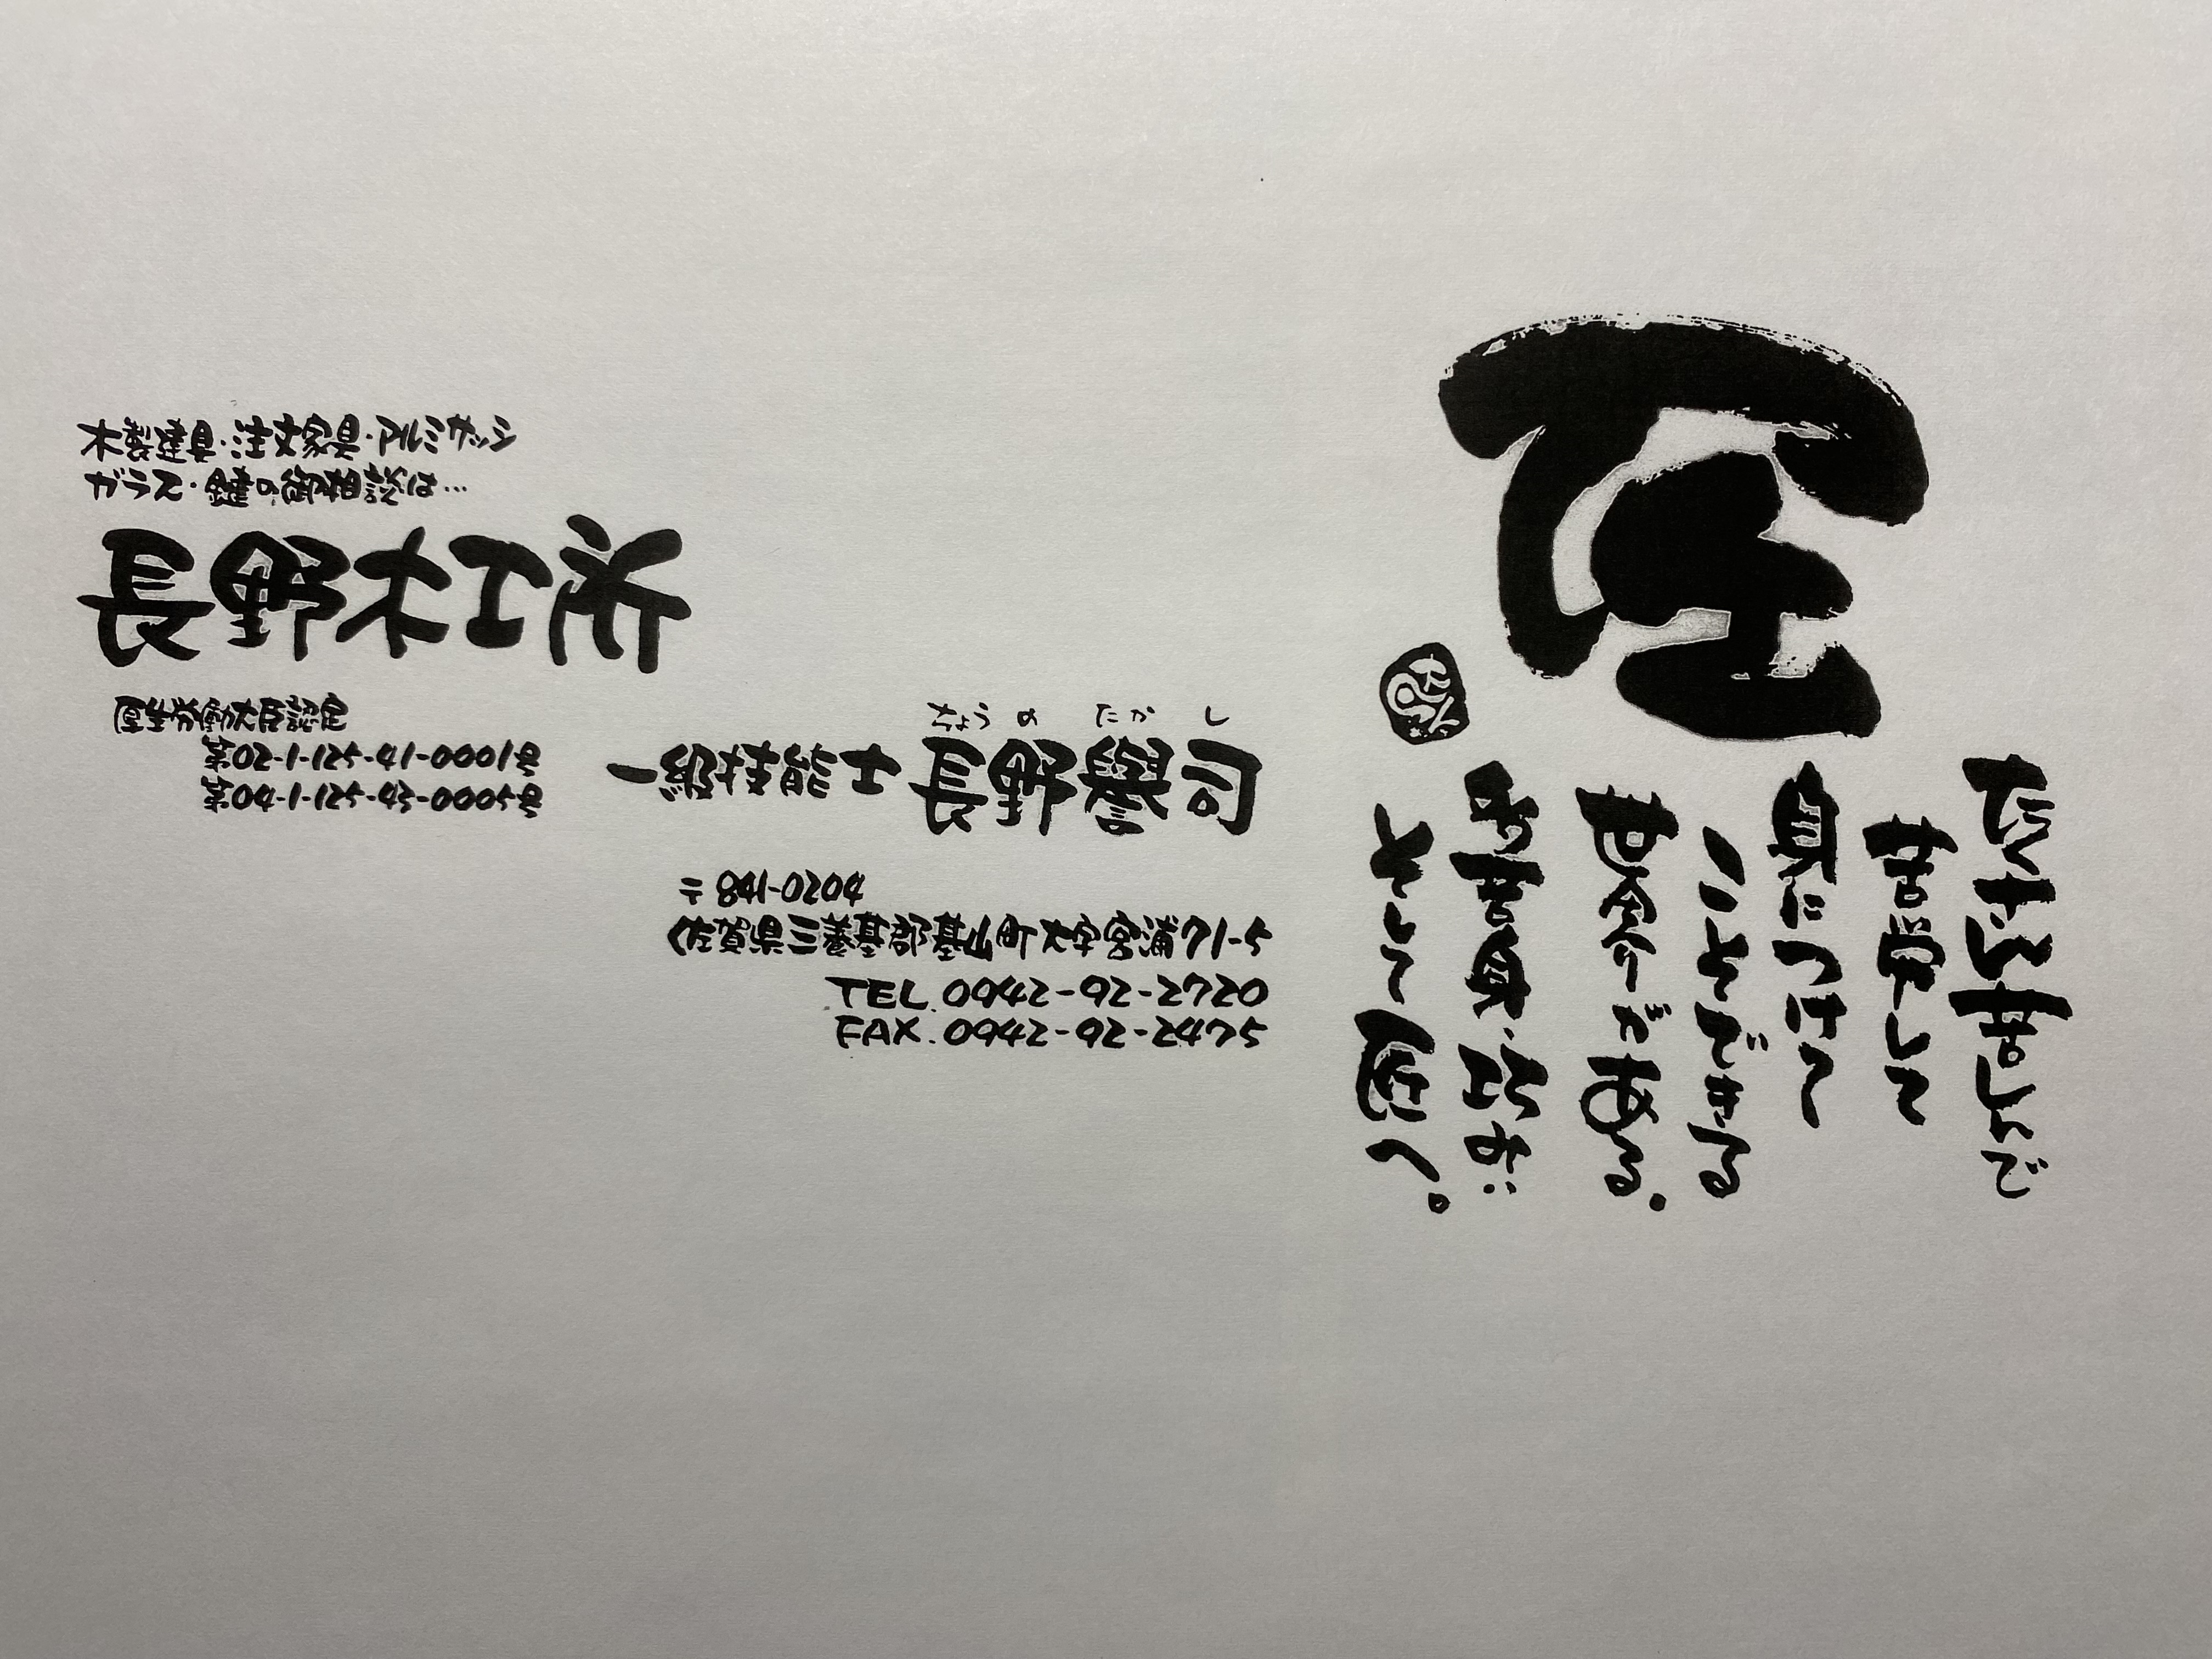 木製建具・注文家具・アルミサッシ
ガラス・鍵の御相談は…
長野木工所
厚生労働大臣認定
第02-1-125-41-0001号
第04-1-125-43-0005号
ちょう の たか し
一級技能士 長野譽司
〒841-0204
佐賀県三養基郡基山町大字宮浦71-5
TEL.0942-92-2720
FAX.0942-92-2475
匠
たくさん苦しんで
苦労して
身につけて
こそできる
世界がある。
巧み‥
そして匠へ。